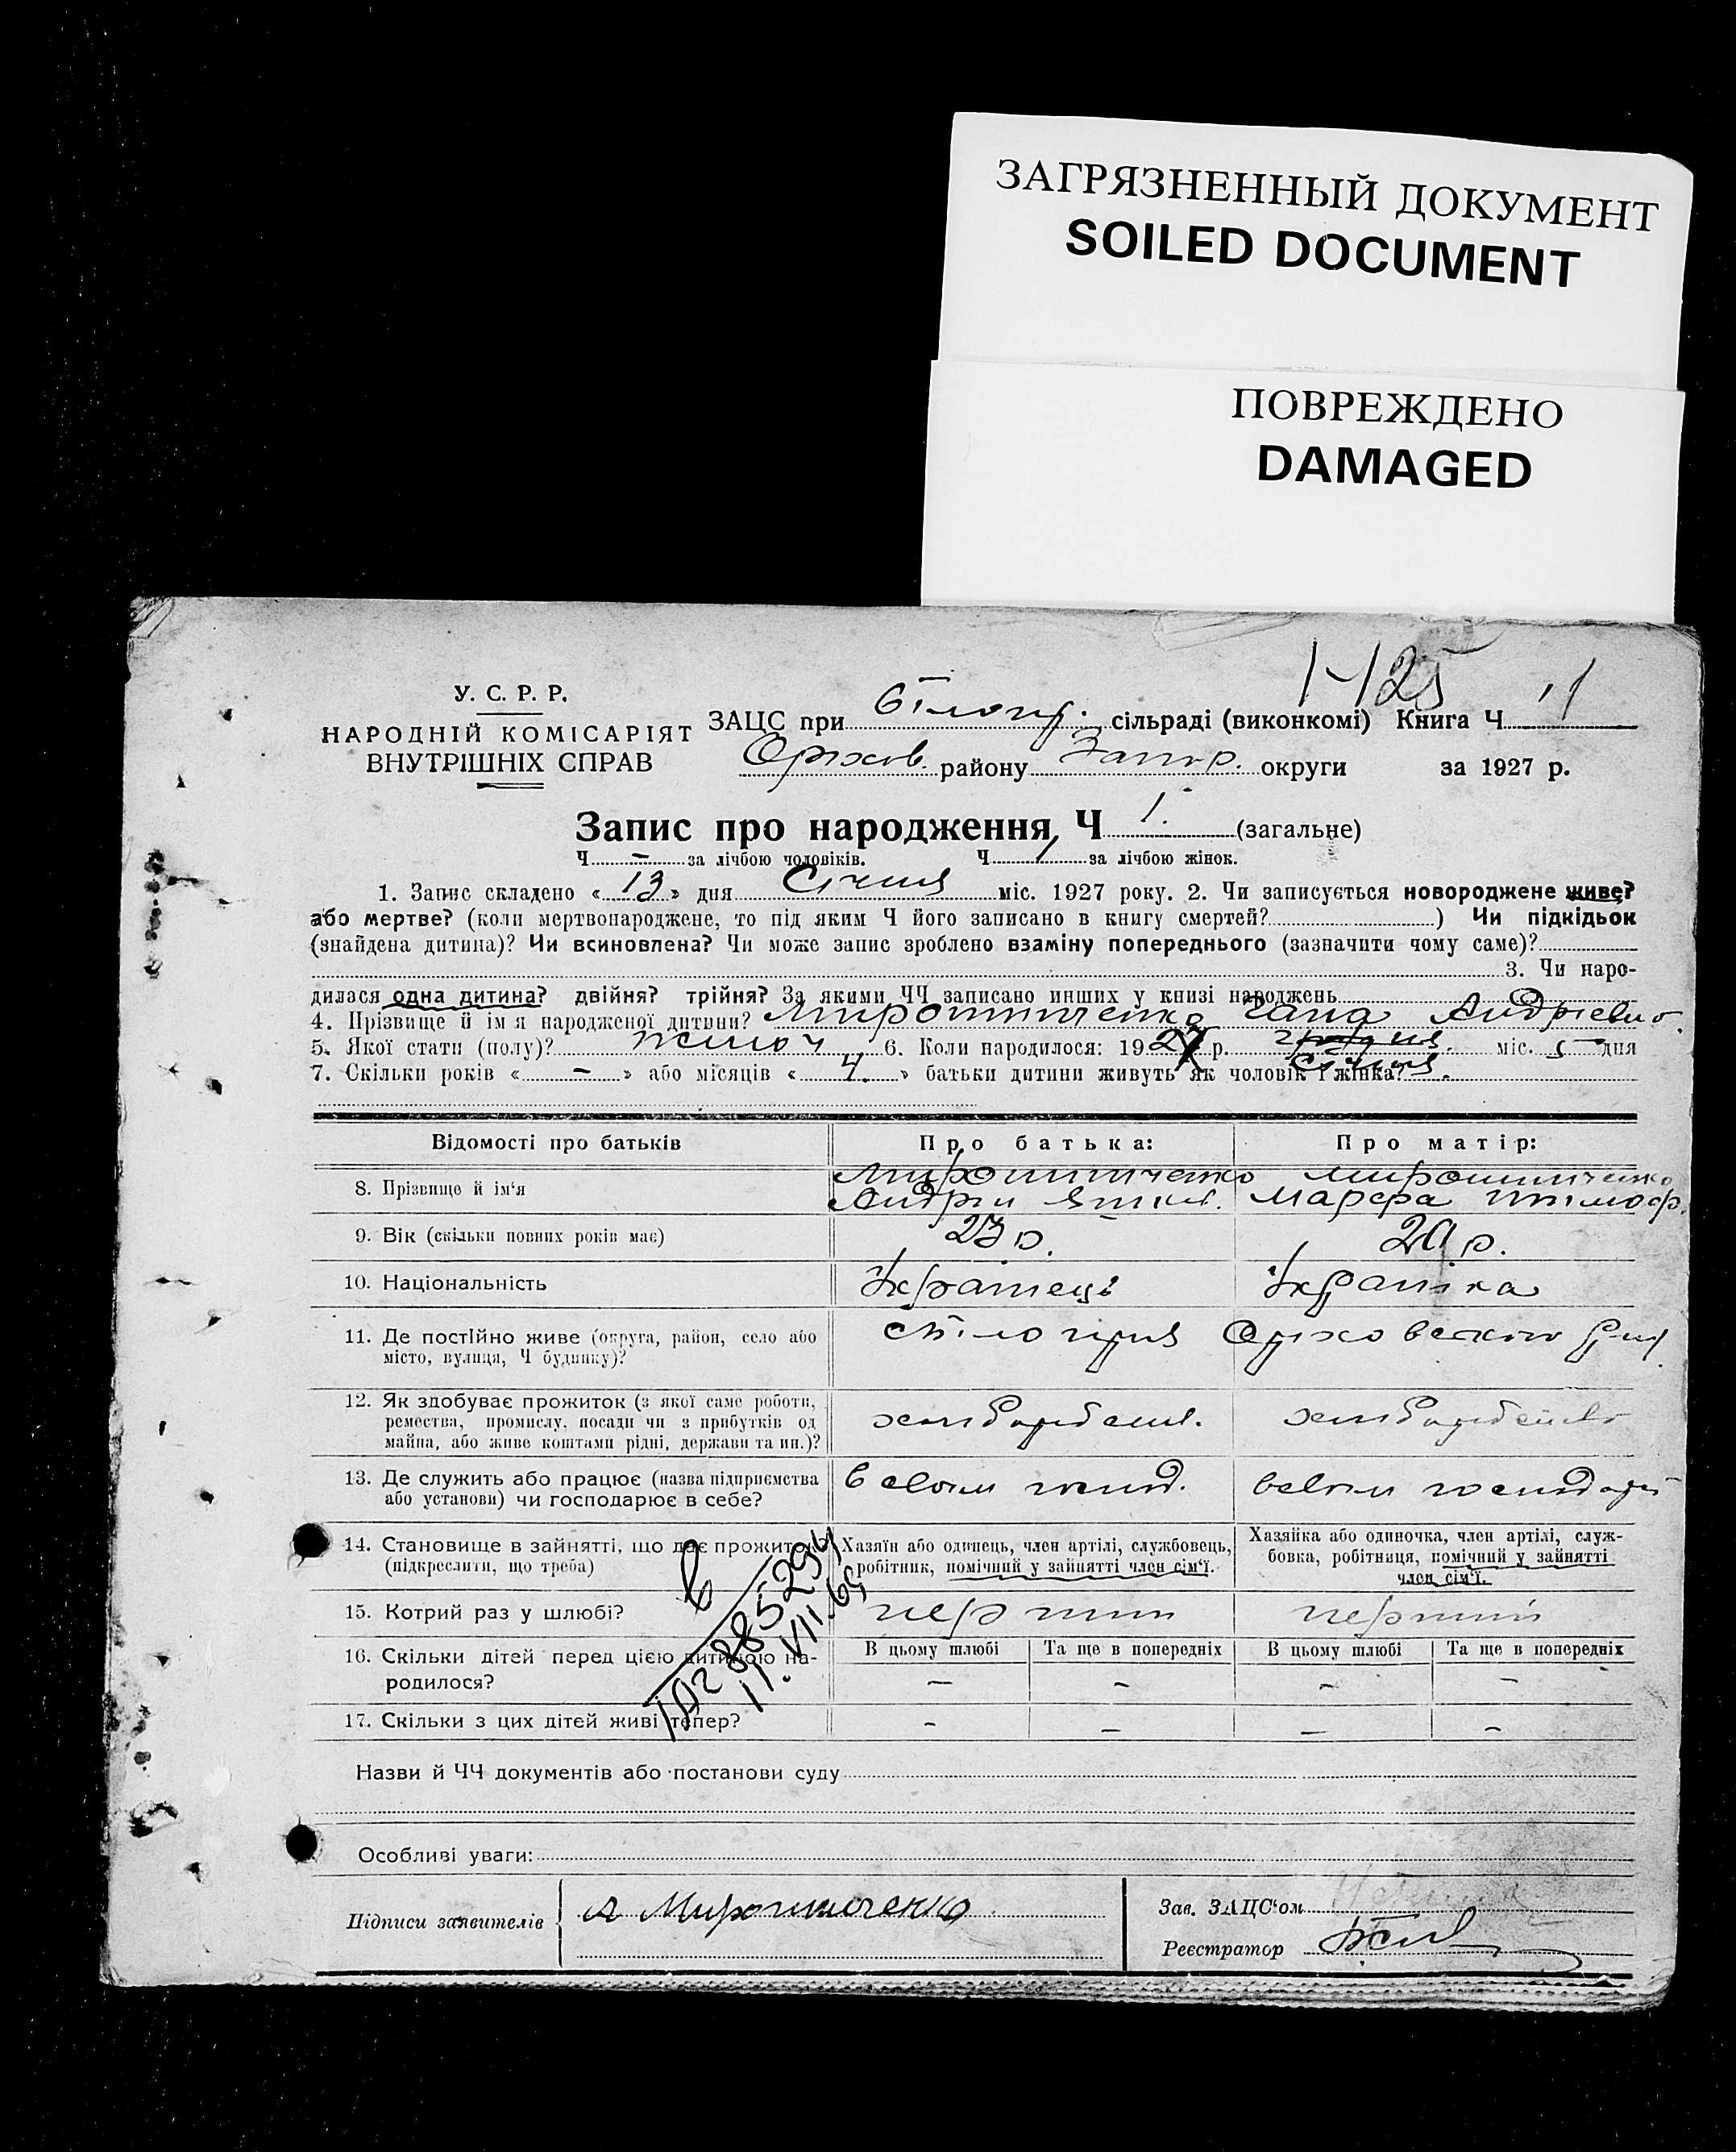 ЗАГРЯЗНЕННЫЙ ДОКУМЕНТ
SOILED DOCUMENT
ПОВРЕЖДЕНО
DAMAGED
1-125
У. С. Р. Р.
НАРОДНІЙ КОМІСАРІЯТ
ВНУТРІШНІХ СПРАВ
ЗАЦС при білогір. сільраді (виконкомі) Книга Ч 11
Оріхов. району Запор. округи за 1927 р.
Запис про народження, Ч 1. (загальне)
Ч - за лічбою чоловіків. Ч 1 за лічбою жінок.
1. Запис складено « 13 » дня Січня міс. 1927 року. 2. Чи записується новороджене живе?
або мертве? (коли мертвонароджене, то під яким Ч його записано в книгу смертей? ) Чи підкідьок
(знайдена дитина)? Чи всиновлена? Чи може запис зроблено взаміну попереднього (зазначити чому саме)?
3. Чи наро-
дилася одна дитина? двійня? трійня? За якими ЧЧ записано инших у книзі народжень
4. Прізвище й ім'я народженої дитини? Мирошниченко Андрієвна
5. Якої статі (полу)? жіноч 6. Коли народилося: 1927 р. січня міс. 5 дня
7. Скільки років « - » або місяців « 4. » батьки дитини живуть як чоловік і жінка?
Відомості про батьків
Про батька:
Про матір:
8. Прізвище й ім‘я
Мирошниченко
Андрій
Мирошниченко
Марфа тимоф.
9. Вік (скільки повних років має)
23 р.
20 р.
10. Національність
Українець
Українка
11. Де постійно живе (округа, район, село або
місто, вулиця, Ч будинку)?
с Білогірья Оріховського рай.
12. Як здобуває прожиток (з якої саме роботи,
ремества, промислу, посади чи з прибутків од
майна, або живе коштами рідні, держави та ин.)?
хліборобств.
хліборобство
13. Де служить або працює (назва підприємства
або установи) чи господарює в себе?
в своїм госпд.
в своїм господарс
14. Становище в зайнятті, що дає прожиток?
(підкреслити, що треба)
Хазяїн або одинець, член артілі, службовець,
робітник, помічний у зайнятті член сім‘ї.
Хазяйка або одиночка, член артілі, служ-
бовка, робітниця, помічний у зайнятті
член сім‘ї.
885294
11.VII.69
15. Котрий раз у шлюбі?
перший
перший
16. Скільки дітей перед цією дитиною на-
родилося?
В цьому шлюбі
Та ще в попередніх
В цьому шлюбі
Та ще в попередніх
- - - -
17. Скільки з цих дітей живі тепер?
- - - -
Назви й ЧЧ документів або постанови суду
Особливі уваги:
Підписи заявителів
А Мирошниченко
Зав. ЗАЦС‘ом
Реєстратор